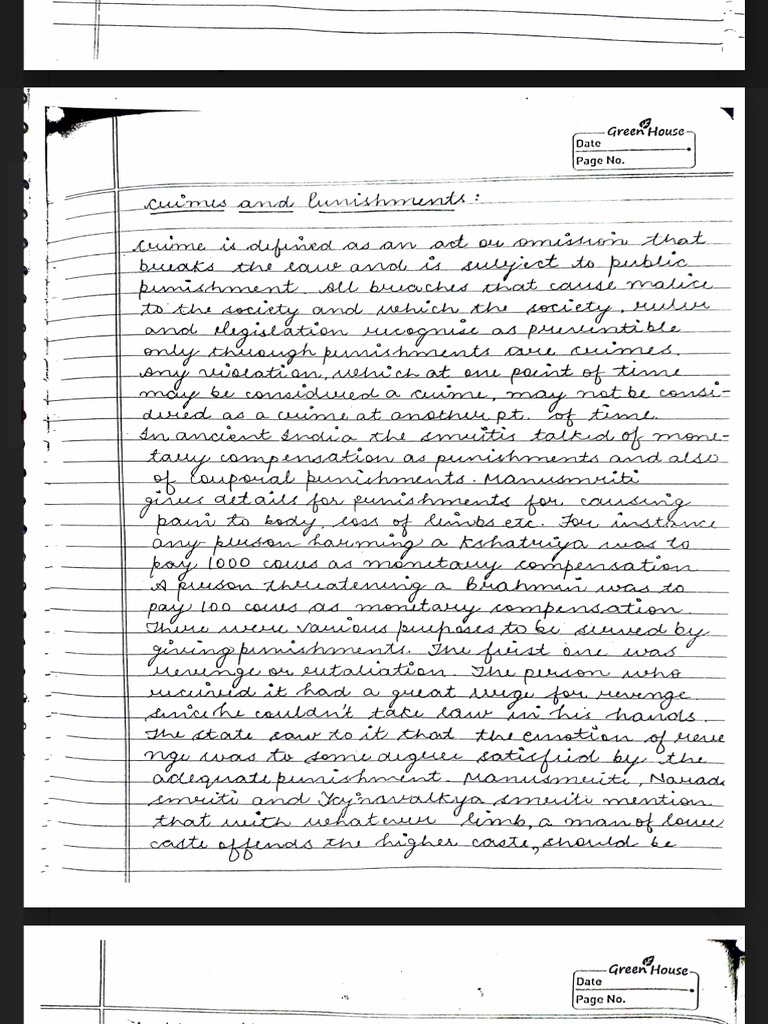 Green House
Date
Page No.
Crimes and Punishments:
Crime is defined as an act or omission that
breaks the law and is subject to public
punishment. All breaches that cause malice
to the society and which the society, ruler
and legislation recognise as preventible
only through punishments are crimes.
Any violation, which at one point of time
may be considered a crime, may not be consi-
dered as a crime at another pt. of time.
In ancient India the smritis talked of mone-
tary compensation as punishments and also
of corporal punishments. Manusmriti
gives details for punishments for causing
pain to body, loss of limbs etc. For instance
any person harming a Kshatriya was to
pay 1000 cows as monetary compensation
A person threatening a Brahmin was to
pay 100 cows as monetary compensation.
There were various purposes to be served by
giving punishments. The first one was
revenge or retaliation. The person who
received it had a great urge for revenge
since he couldn't take law in his hands.
The state saw to it that the emotion of reve
nge was to some degree satisfied by the
adequate punishment. Manusmriti, Narad
smriti and Yajnavalkya smriti mention
that with whatever limb, a man of lower
caste offends the higher caste, should be
Green House
Date
Page No.